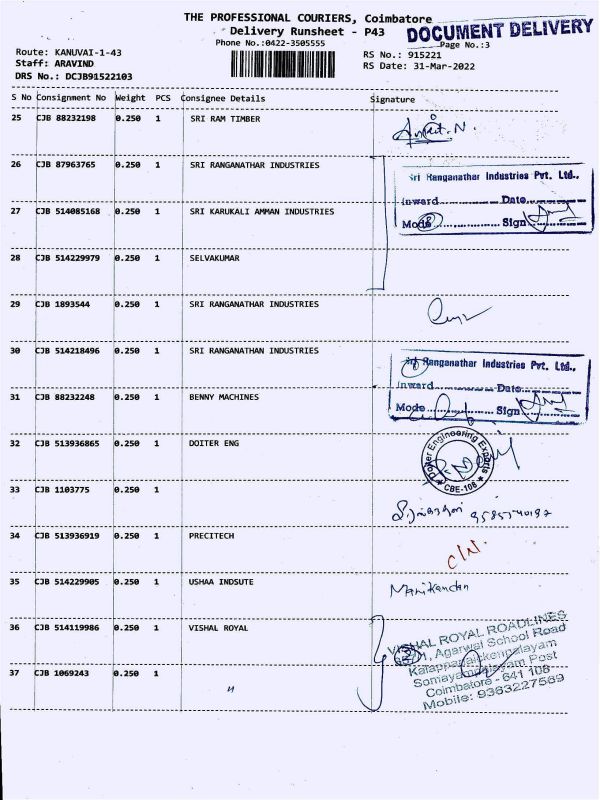 THE PROFESSIONAL COURIERS, Coimbatore
DOCUMENT DELIVERY
Delivery Runsheet - P43
Phone No.:0422-3505555
Page No.:3
Route: KANUVAI-1-43
RS No.: 915221
Staff: ARAVIND
RS Date: 31-Mar-2022
DRS No.: DCJB91522103
S No Consignment No Weight PCS Consignee Details Signature
25 CJB 88232198 0.250 1 SRI RAM TIMBER
26 CJB 87963765 0.250 1 SRI RANGANATHAR INDUSTRIES
Sri Ranganathar Industries Pvt. Ltd.,
Inward.............. Date..............
Mode.............. Sign..............
27 CJB 514085168 0.250 1 SRI KARUKALI AMMAN INDUSTRIES
28 CJB 514229979 0.250 1 SELVAKUMAR
29 CJB 1893544 0.250 1 SRI RANGANATHAR INDUSTRIES
30 CJB 514218496 0.250 1 SRI RANGANATHAN INDUSTRIES
Sri Ranganathar Industries Pvt. Ltd.,
Inward.............. Date..............
Mode.............. Sign..............
31 CJB 88232248 0.250 1 BENNY MACHINES
32 CJB 513936865 0.250 1 DOITER ENG
Doiter Engineering Exports
CBE-108
33 CJB 1103775 0.250 1
34 CJB 513936919 0.250 1 PRECITECH
35 CJB 514229905 0.250 1 USHAA INDSUTE
Manikandan
36 CJB 514119986 0.250 1 VISHAL ROYAL
VISHAL ROYAL ROADLINES
Agarwal School Road
Somayampalayam Post
Coimbatore - 641 108
Mobile: 9363227569
37 CJB 1069243 0.250 1
"